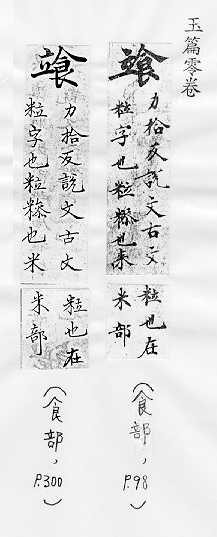 玉篇零卷
𩚷
力拾反説文古文
粒字也粒糝也来
粒也在
米部
(食部,
P.98)
𩚷
力拾反説文古文
粒字也粒糝也米
粒也在
米部
(食部,
P.300)